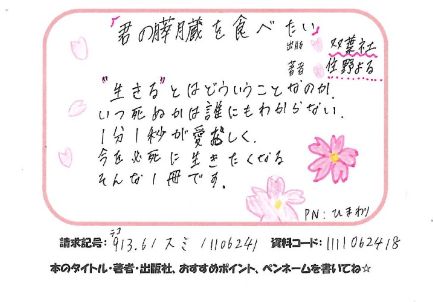 『君の膵臓を食べたい』
出版 双葉社
著者 住野よる
"生きる"とはどういうことなのか.
いつ死ぬかは誰にもわからない.
1分1秒が愛おしく.
今を必死に生きたくなる
そんな1冊です.
PN:ひまわり
請求記号: 913.61 スミ 11106241 資料コード: 1111062418
本のタイトル・著者・出版社、おすすめポイント、ペンネームを書いてね☆